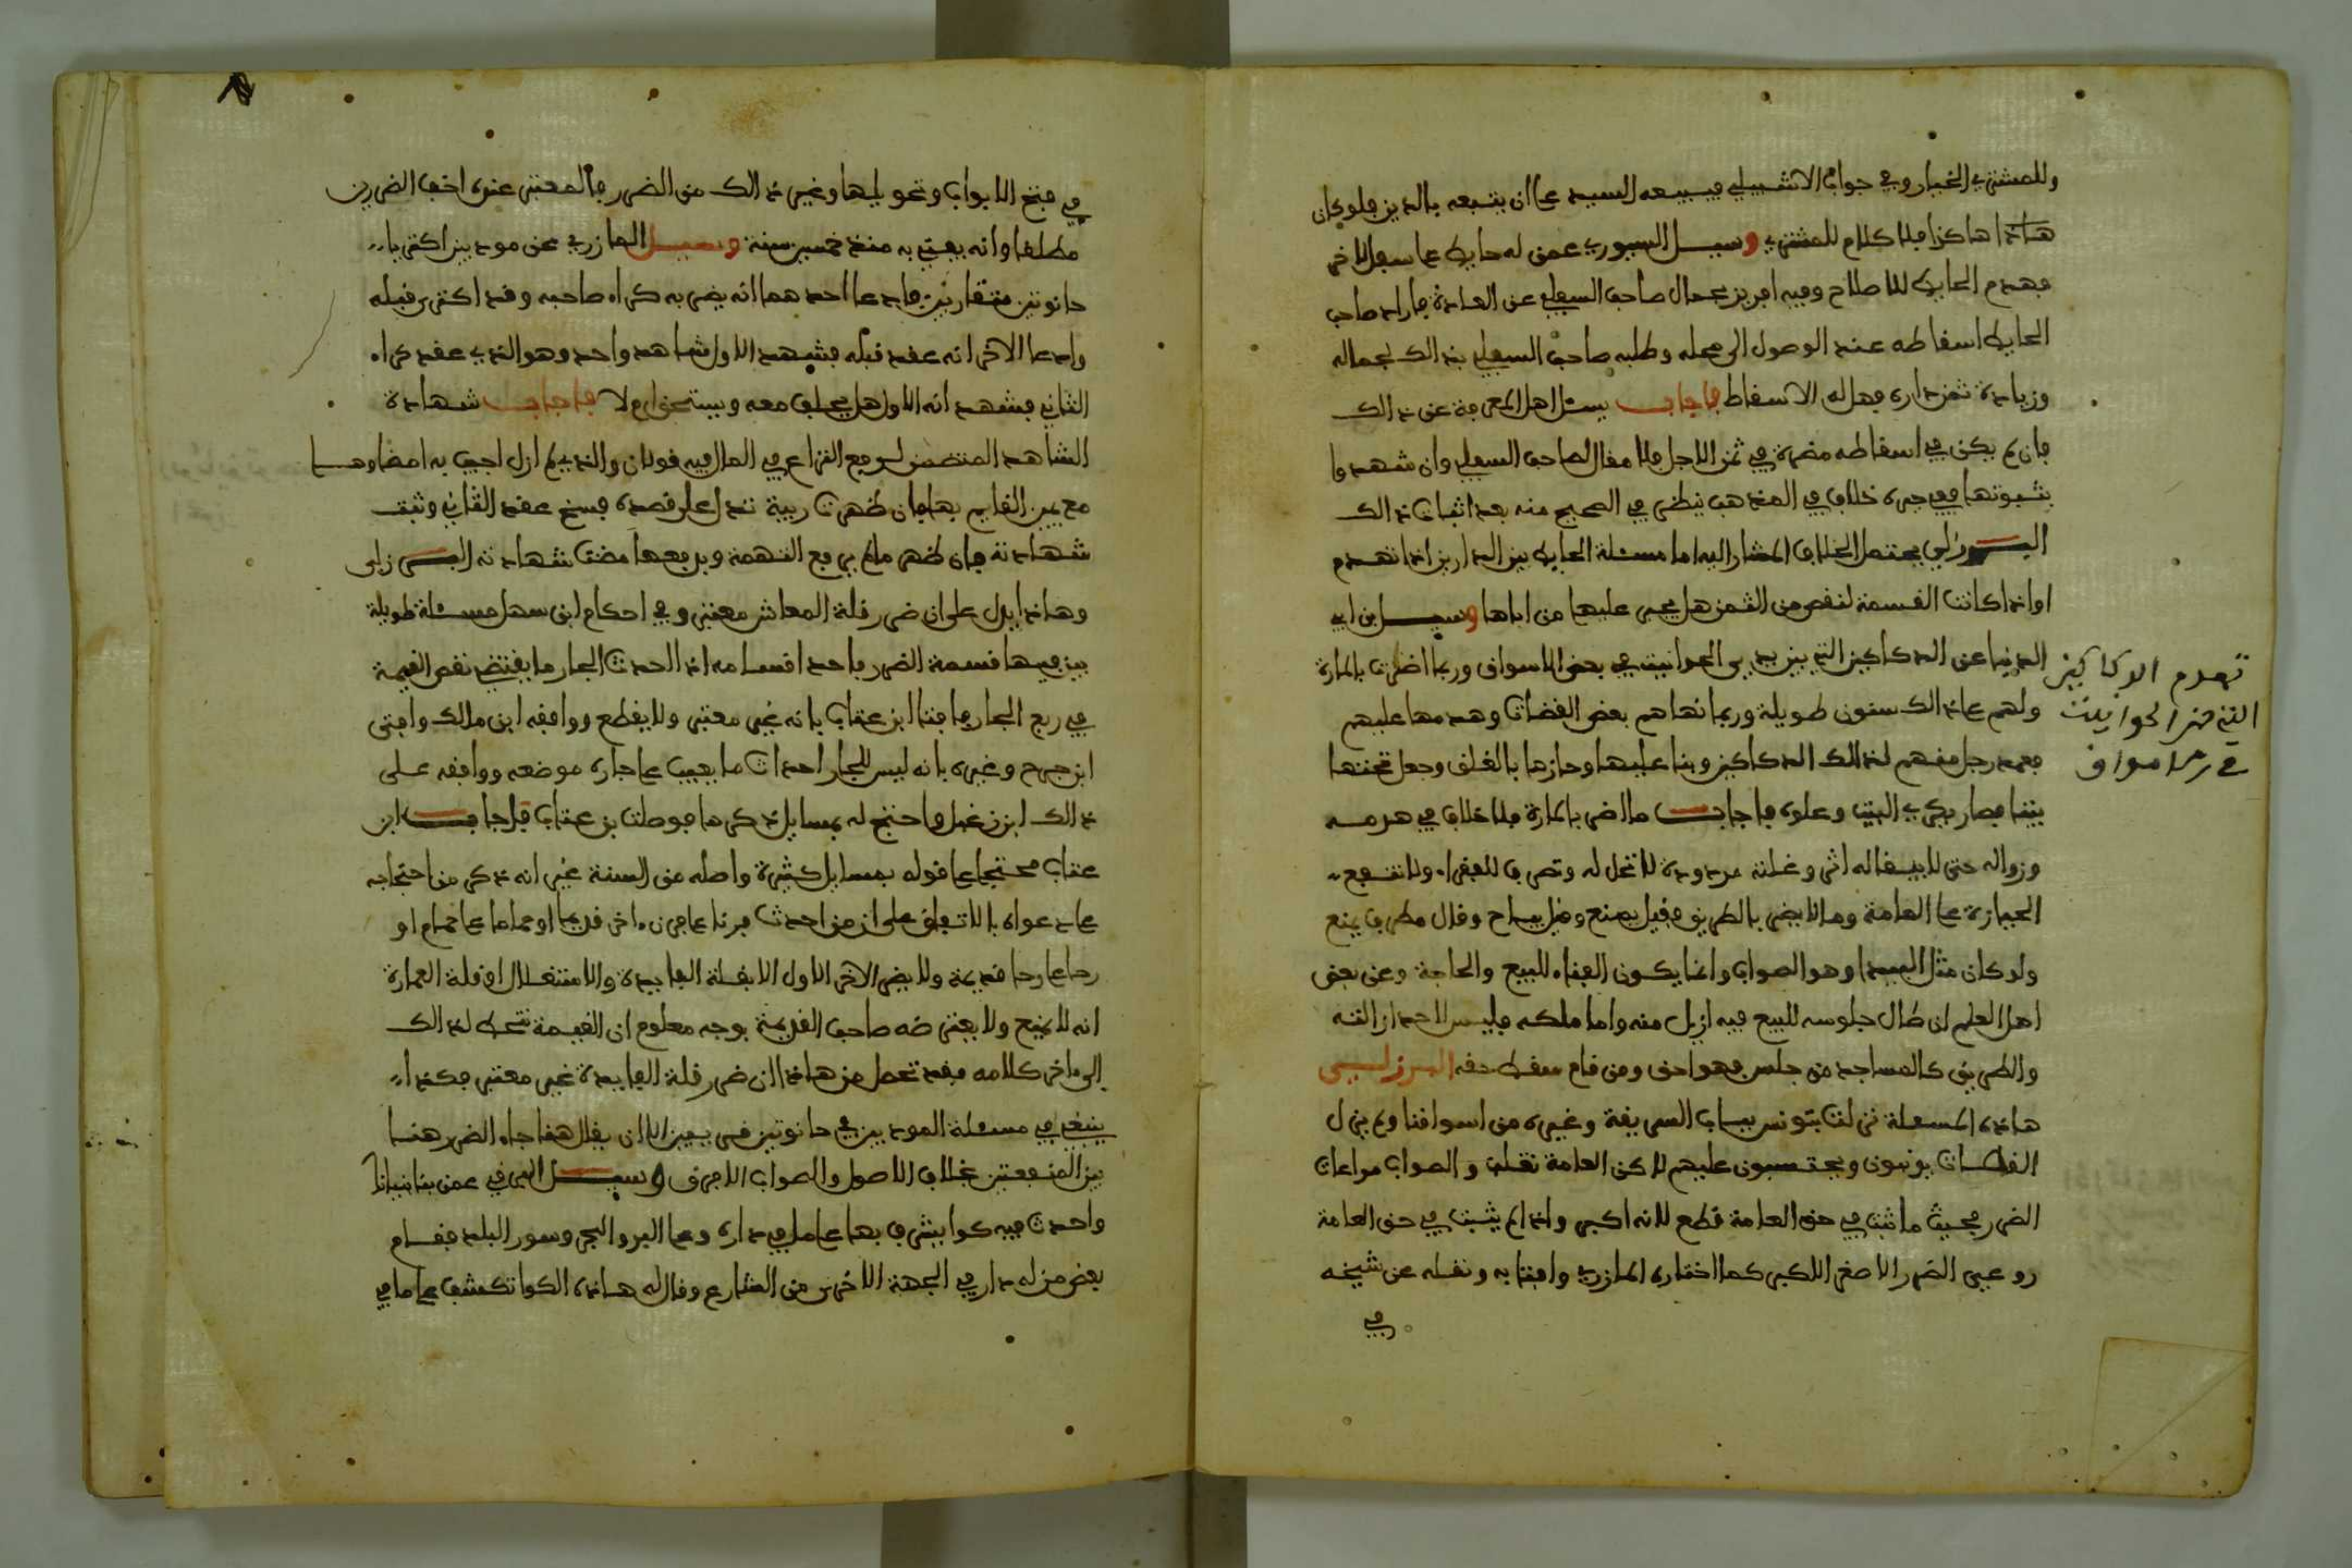 وللمشتري الخيار وفي جواب الاشبيلي فيبيعه السيد على ان يتبعه بالدين فلو كان
هاذا هاكذا فلا كلام للمشتري وسيل السيوري عمن له حايط على سفل لاخر
فهدم الحايط للاصلاح وفيه افريز بحمال صاحب السفلي عن العادة فاراد صاحب
الحايط اسقاطه عند الوصول الى محله وطلبه صاحب السفلي بذالك لجماله
وزيادة ثمن داره فهل له الاسقاط فاجاب يسئل اهل المعرفة عن ذالك
فان لم يكن في اسقاطه مضرة في ثمن الاجل فلا مقال لصاحب السفلي وان شهدوا
بثبوتها ففي جبره خلاف في المذهب ينظر في الصحيح منه بعد اثبات ذالك
البرزلي يحتمل الخلاف المشار اليه اما مسئلة الحايط بين الدارين اذا تهدم
او اذا كانت القسمة لنقص من الثمن هل يجبر عليها من اباها وسيل ابن ابي
الدنيا عن الدكاكين التي بين يدي الحوانيت في بعض الاسواق وربما اضرت بالمارة
ولهم على ذالك سنون طويلة وربما نهاهم بعض القضات وهدمها عليهم
فعمد رجل منهم لذالك الدكاكين وبنا عليها وحازها بالغلق وجعل تحتها
بيتا فصار يكري البيت وعلوه فاجاب ما اضر بالمارة فلا خلاف في هدمه
وزواله حتى لا يبقا له اثر وغلته مردودة لا تحل له وتصرف للفقراء ولا تنفع
الحيازة على العامة وما لا يضر بالطريق فقيل يمنع وقيل يباح وقال مطرف يمنع
ولو كان مثل البيدا وهو الصواب وانما يكون الفناء للبيع والحاجة وعن بعض
اهل العلم ان طال جلوسه للبيع فيه ازيل منه واما ملكه فليس لاحد ازالته
والطريق كالمساجد من جلس فهو احق ومن قام سقط حقه البرزلي
هاذه المسئلة نزلت بتونس بباب السريقة وغيره من اسواقنا ولم يزل
القضات يونبون ويحتسبون عليهم لاكن العامة تغلب والصواب مراعات
الضرر فحيث ما ثبت في حق العامة قطع لانه اكبر واذا لم يثبت في حق العامة
روعي الضرر الاصغر للاكبر كما اختاره المازري وافتا به ونقله عن شيخه
في
تهدم الدكاكين
التي من الحوانيت
في الاسواق
في فتح الابواب وتحويلها وغير ذالك من الضرر فالمعتبر عنده اخف الضررين
مطلقا وانه يفتي به منذ خمسين سنة وسيل المازري عن مودبين اكتريا
حانوتين متقاربين فادعا احدهما انه يضر به كراء صاحبه وقد اكترى قبله
وادعا الاخر انه عقد قبله فشهد للاول شاهد واحد وهو الذي عقد كراء
الثاني فشهد انه الاول هل يحلف معه ويستحق ام لا فاجاب شهادة
الشاهد المتضمن لرفع النزاع في المال فيه قولان والذي لم ازل اجيب به امضاوها
مع يمين القايم بها فان ظهرت ريبة تدل على قصده فسخ عقد الثاني وثبت
شهادته فان ظهر ما لم يرفع التهمة ويدفعها مضت شهادته البرزلي
وهاذا يدل على ان ضرر قلة المعاش معتبر وفي احكام ابن سهل مسئلة طويلة
بين فيها قسمة الضرر فاحد اقسامه اذا احدث الجار ما يقتضي نقص القيمة
في ربع الجار فافتا ابن عتاب بانه غير معتبر ولا يقطع ووافقه ابن مالك وافتى
ابن جرج وغيره بانه ليس للجار احداث ما يعيب على جاره موضعه ووافقه على
ذالك ابن زغبل واحتج له بمسايل ذكرها فوصلت بن عتاب فاجاب ابن
عتاب محتجا على قوله بمسايل كثيرة واصله من السنة غير انه ذكر من احتجاجه
على دعواه بالاتفاق على ان من احدث فرنا على فرن ءاخر قديم او حماما على حمام او
رحا على رحا قديمة ولا يضر الاخر الاول الا بقلة الفايدة والاستغلال او قلة العمارة
انه لا يمنع ولا يعترضه صاحب القديمة بوجه معلوم ان القيمة تنحط لذالك
الى ءاخر كلامه فقد تحصل من هاذا ان ضرر قلة الفايدة غير معتبر فكذا
ينبغي في مسئلة المودبين في حانوتين قريبين الا ان يقال هنا جاء الضرر هنا
بين المنفعتين بخلاف الاصول والصواب الا فرق وسيل المرفي عمن بنا بنيانا
واحدث فيه كوا يشرف بها على ما في داره وعلى البر والبحر وسور البلد فقام
بعض من له دار في الجهة الاخرى من الشارع وقال له هاذه الكوا تكشف على ما في